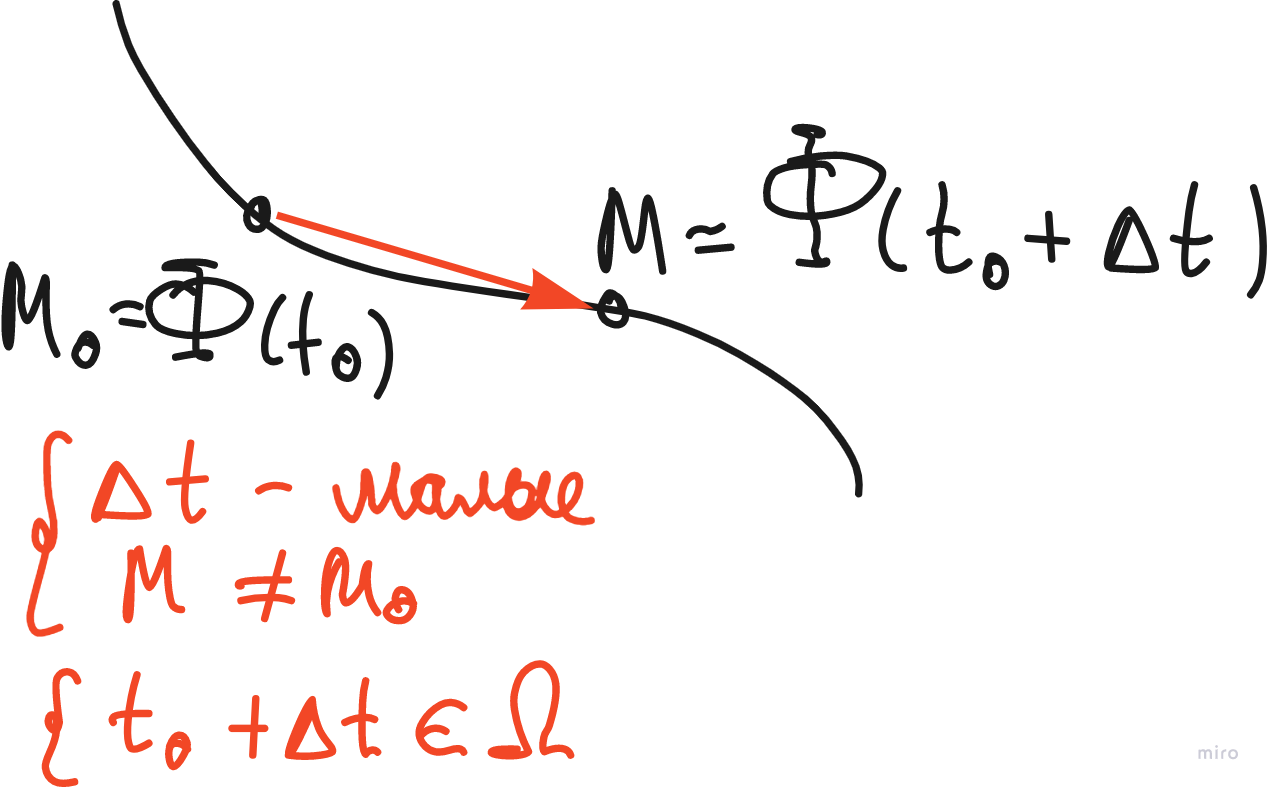 M = Φ(t₀ + Δt)
M₀ = Φ(t₀)
{ Δt - малые
M ≠ M₀
{ t₀ + Δt ∈ Ω
miro